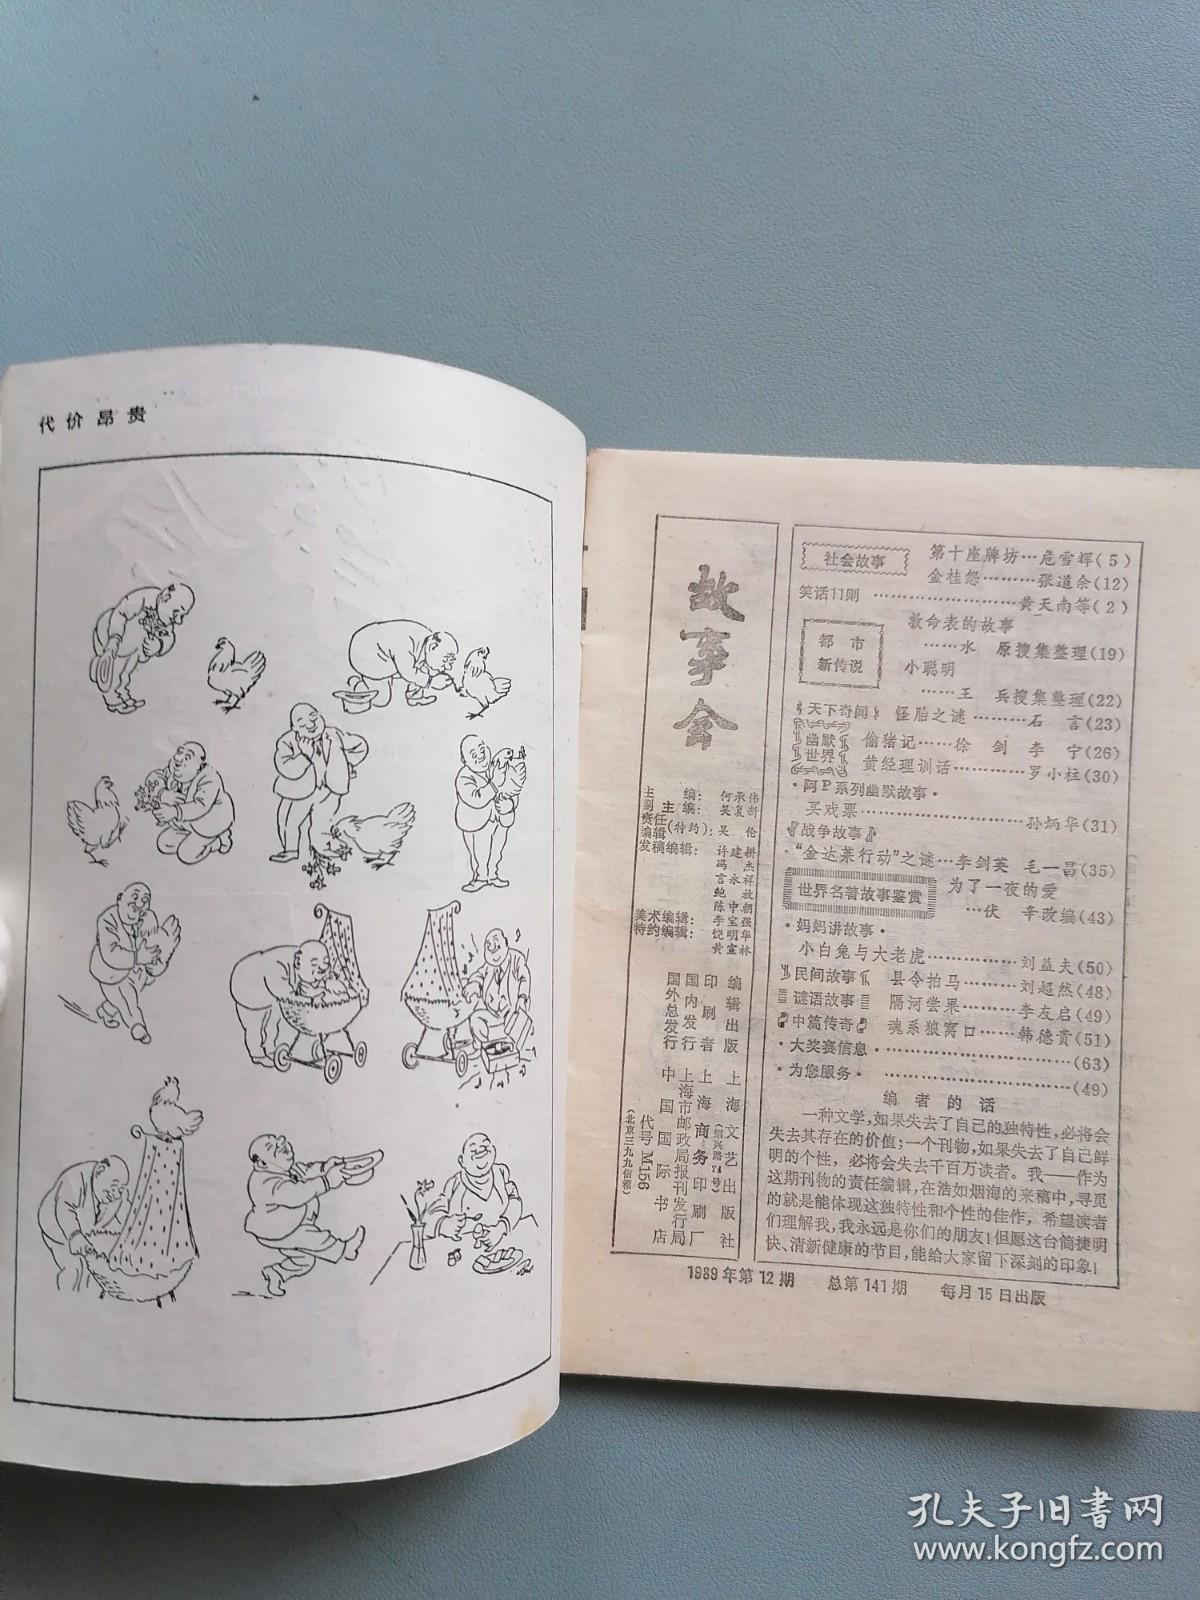 代价昂贵
故事会
主编：何承伟
副主编：吴复新
责任编辑（特约）：吴伦
美术编辑：李宝强
编辑出版 上海文艺出版社
（绍兴路74号）
印刷者 上海商务印刷厂
国内发行 上海市邮政局报刊发行局
国外总发行 中国国际书店
代号M156
（北京三九九信箱）
社会故事
第十座牌坊…危雪辉(5)
金桂怨………张道余(12)
笑话11则……………………黄天南等(2)
都市新传说
救命表的故事
……水 原搜集整理(19)
小聪明
……王 兵搜集整理(22)
天下奇闻 怪胎之谜………石 言(23)
幽默世界
偷猪记……徐 剑 李 宁(26)
黄经理训话…………罗小柱(30)
·阿P系列幽默故事·
买戏票…………………孙炳华(31)
战争故事
“金达莱行动”之谜…李剑英 毛一昌(35)
世界名著故事鉴赏
为了一夜的爱
…伏 辛改编(43)
·妈妈讲故事·
小白兔与大老虎……………刘益夫(50)
民间故事 县令拍马………刘超然(48)
谜语故事 隔河尝果………李友启(49)
中篇传奇 魂系狼窝口……韩德贵(51)
·大奖赛信息·…………………………(63)
·为您服务·…………………………(49)
编者的话
一种文学，如果失去了自己的独特性，必将会
失去其存在的价值；一个刊物，如果失去了自己鲜
明的个性，必将会失去千百万读者。我——作为
这期刊物的责任编辑，在浩如烟海的来稿中，寻觅
的就是能体现这独特性和个性的佳作，希望读者
们理解我，我永远是你们的朋友！但愿这台简捷明
快、清新健康的节目，能给大家留下深刻的印象！
1989年第12期 总第141期 每月15日出版
孔夫子旧书网
www.kongfz.com